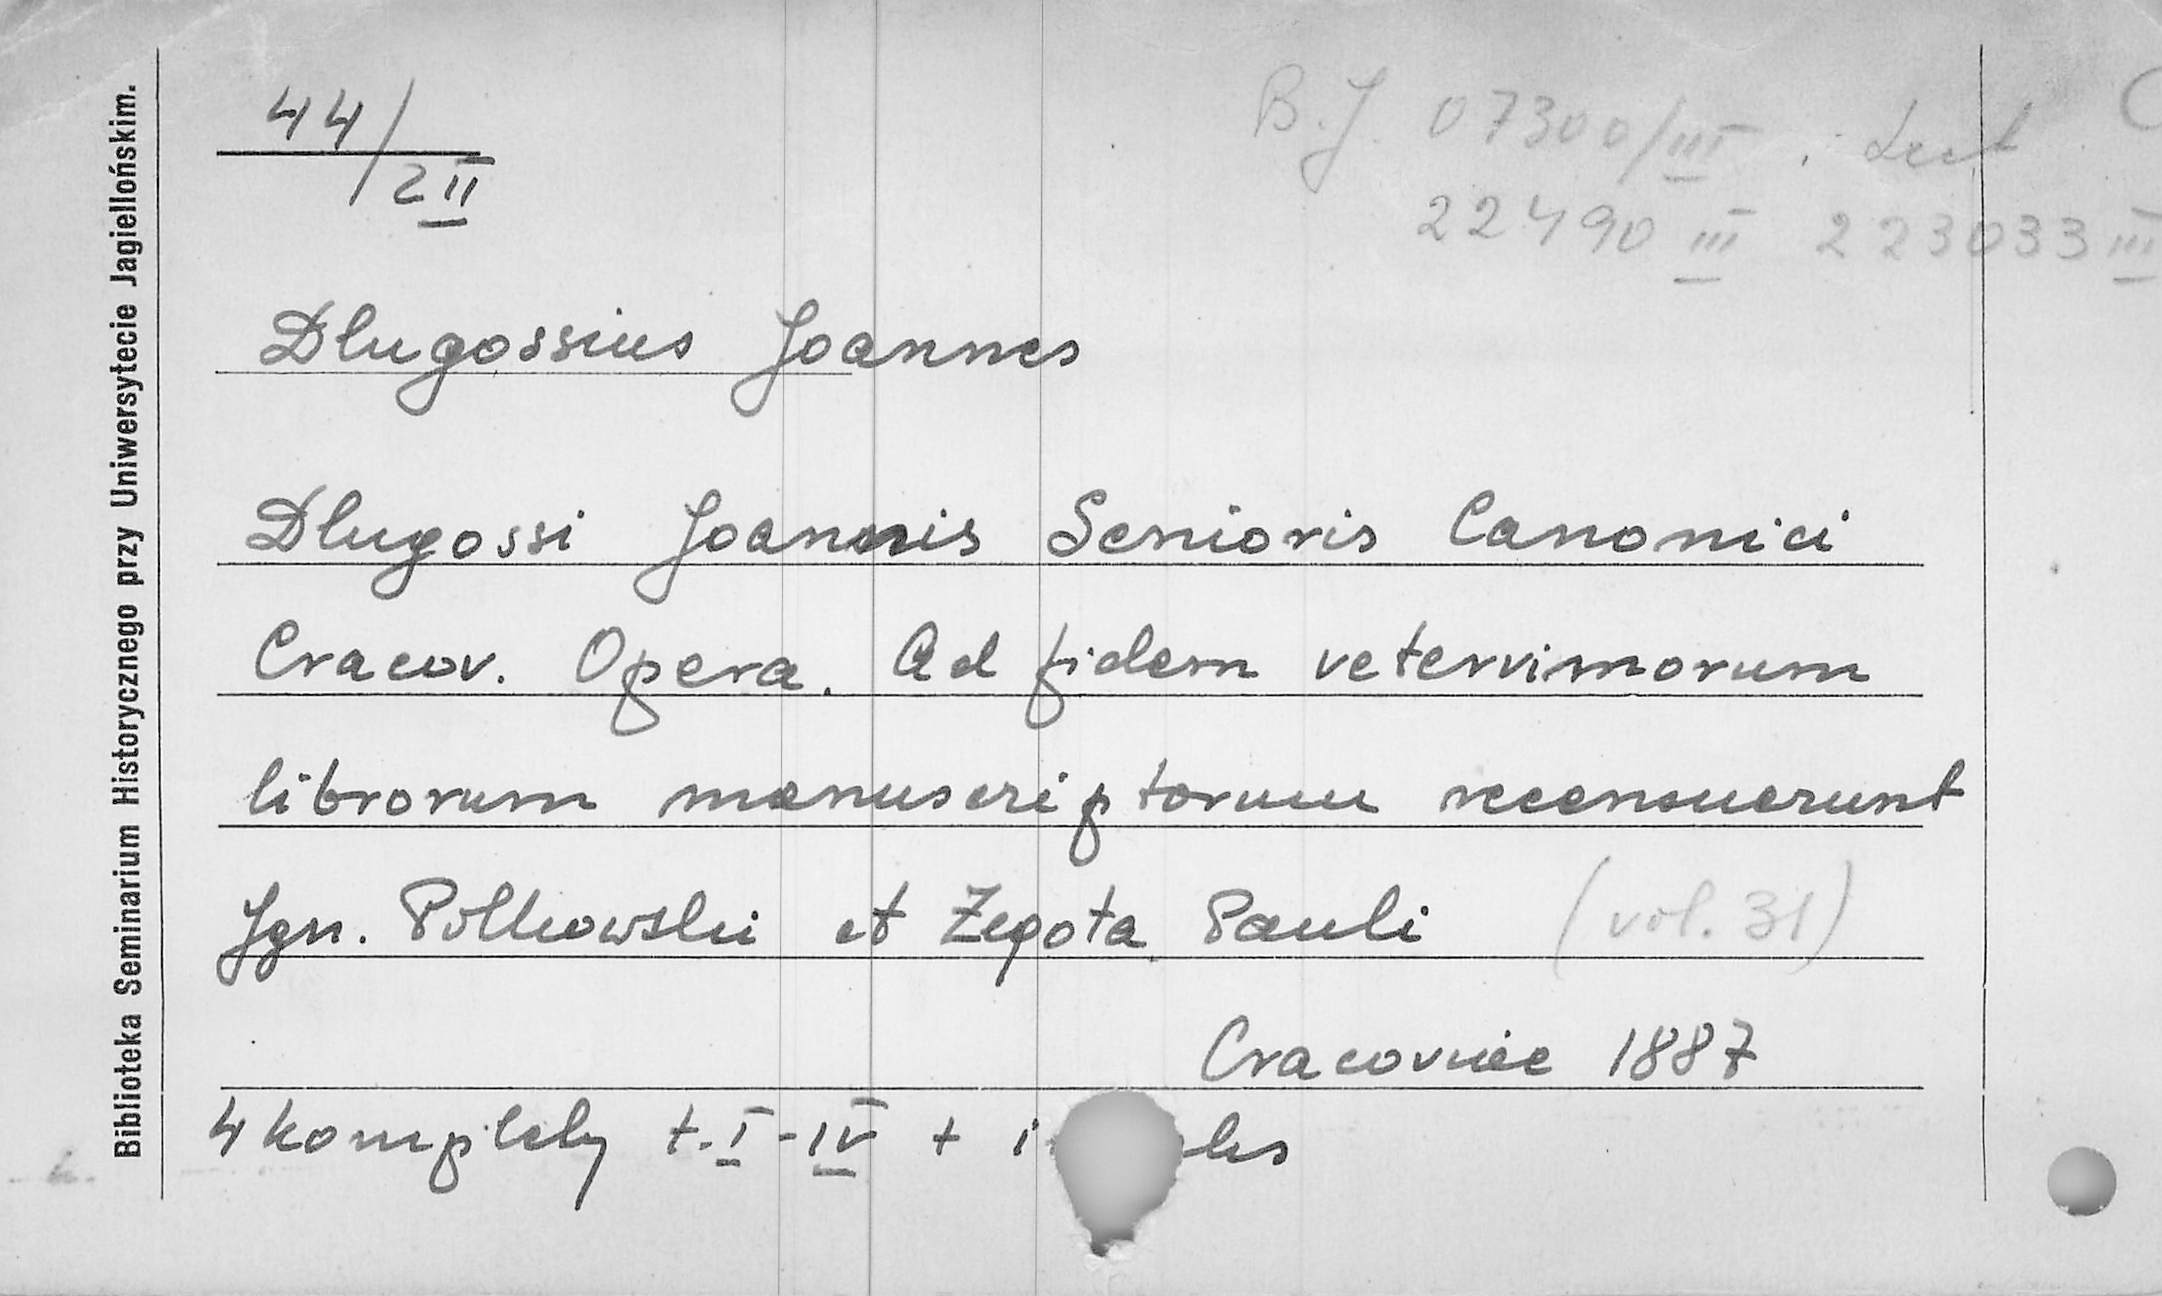 Biblioteka Seminarium Historycznego przy Uniwersytecie Jagiellońskim.
44/2 II
B.J. 07300/III . Lect
22490 III 223033 III
Dlugossius Joannes
Dlugossi Joannis Senioris Canonici
Cracov. Opera. Ad fidem vetervimorum
librorum manuscriptorum recensuerunt
Ign. Polkowski et Żegota Pauli (vol. 31)
Cracoviae 1887
4 komplety t. I-IV +